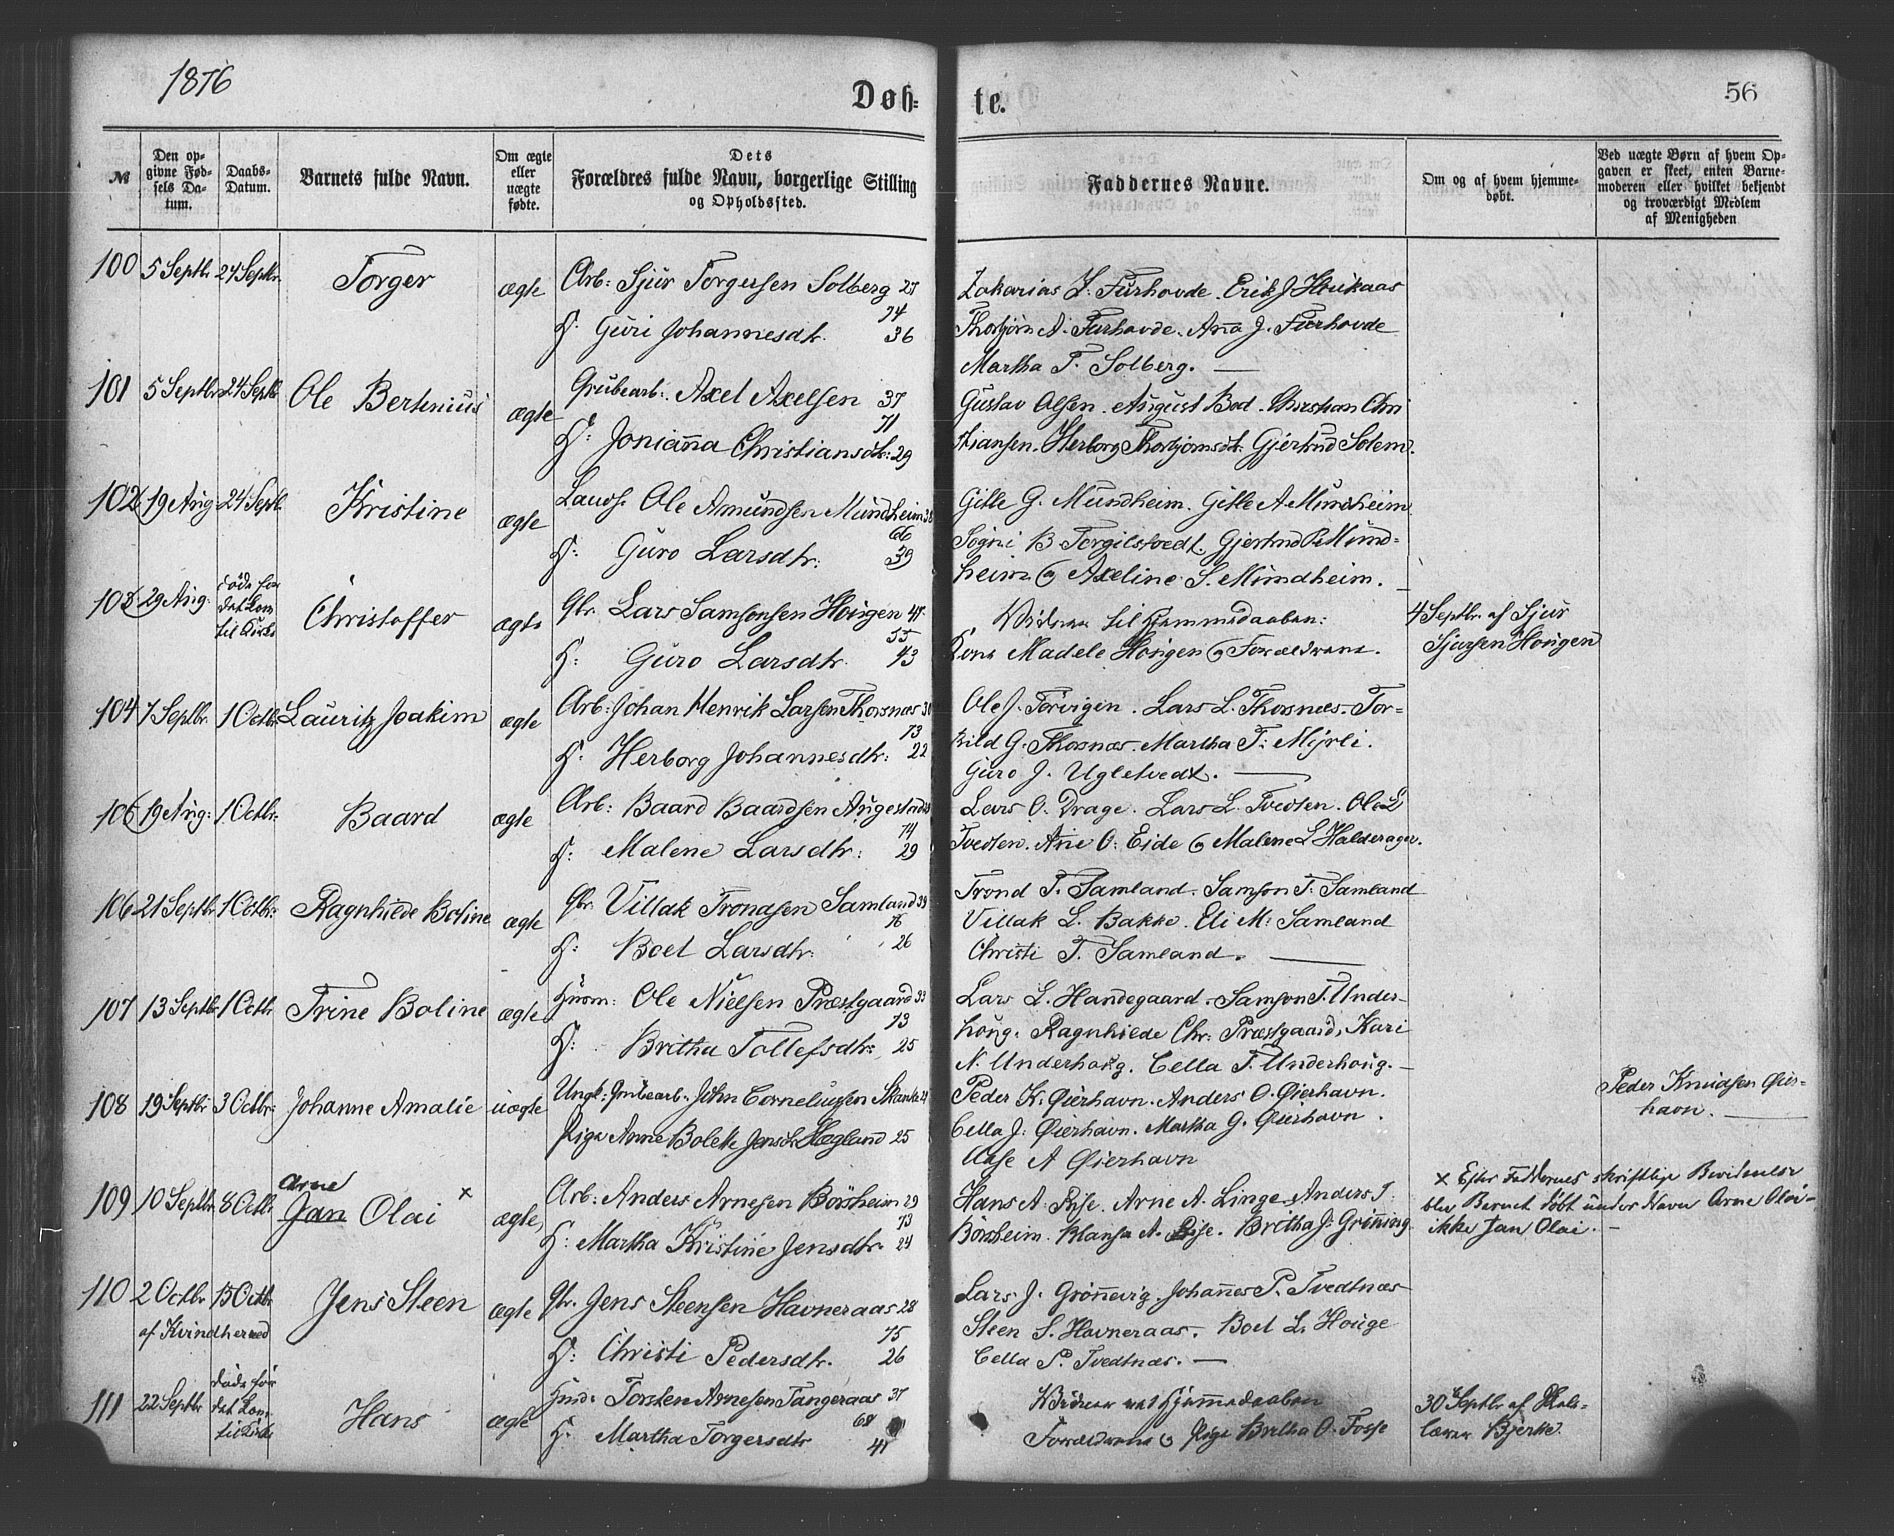 1876
Døb-
te.
56
№
Den op-
givne Fød-
sels Da-
tum.
Daabs-
Datum.
Barnets fulde Navn.
Om ægte
eller
uægte
fødte.
Dets
Forældres fulde Navn, borgerlige Stilling
og Opholdssted.
Faddernes Navne.
Om og af hvem hjemme-
døbt.
Ved uægte Børn af hvem Op-
gaven er skeet, enten Barne-
moderen eller hvilket bekjendt
og troværdigt Medlem
af Menigheden
100 5 Septbr 24 Septbr. Torger ægte Arb: Sjur Torgersen Solberg 27
74
H. Guri Johannesdtr. 36
Zakarias L. Furhovde. Erik J. Haukaas
Thorbjørn A. Furhovde. Ana J. Furhovde
Martha T. Solberg. —
101 5 Septbr 24 Septb Ole Bertinius ægte Grubearb: Axel Axelsen 37
71
H: Jonianna Christiansdtr: 29
Gustav Olsen. August Bod. Christian Chri
stiansen. Herborg Thorbjørnsdtr. Gjertrud Solem.
102 19 Aug 24 Septb. Kristine ægte Ole Amundsen Mundheim 38
66
H: Guro Larsdtr: 39
Gitle G. Mundheim. Gitle A Mundheim
B Torgilstvedt. Gjertrud P Mund-
heim og Axeline S. Mundheim. —
103 29 Aug: døde før
det kom
til Kirke
Christoffer ægte Gbr. Lars Samsonsen Hougen 41
55
H: Guro Larsdtr. 43
Vidner til Hjemmedaaben:
Kone Madele Hougen og Forældrene.
4 Septbr. af Sjur
Sjursen Hougen
104 7 Septbr. 1 Octbr Lauritz Joakim ægte Arb: Johan Henrik Larsen Thorsnæs 31
73
H: Herborg Johannesdtr: 22
Ole J. Torvigen. Lars L. Thorsnæs. Tor-
kild G. Thorsnæs. Martha T: Myrli.
Guro J. Ugletvedt. —
106 19 Aug: 1 Octbr: Baard ægte Arb: Baard Baardsen Augestad
74
H: Malene Larsdtr: 29
Lars O. Drage. Lars L. Tvedten. Ole L
Tvedten. Ane O. Eide og Malene L Halderager.
106 21 Septbr 1 Octbr: Ragnhilde Boline ægte Gbr. Villak Trondsen Samland 39
76
H: Boel Larsdtr: 26
Trond T. Samland. Samson T. Samland
Villak L. Bakke. Eli M: Samland
Christi T. Samland. —
107 13 Septbr 1 Octbr Trine Boline ægte Husm: Ole Nielsen Præstgaard 33
73
H: Britha Tollefsdtr: 25
Lars L. Handegaard. Samson T. Under-
houg. Ragnhilde Chr. Præstgaard, Kari
N. Underhoug. Cella T. Underhoug. —
108 19 Septbr 3 Octbr: Johanne Amalie uægte Ungk: Grubearb. John Corneliussen Skanke 24
Pige Anne Bolette Jensd. Hægland 25
Peder K. Øierhavn. Anders O. Øierhavn.
Cella J. Øierhavn. Martha G. Øierhavn.
Aase A Øierhavn
Peder Knudsen Øier-
havn. —
109 10 Septbr 8 Octbr
Arne
Jan Olai x
ægte Arb: Anders Arnesen Børsheim 29
73
H: Martha Kristine Jensdtr. 24
Hans A. Riise. Arne A. Linge. Anders J.
Børsheim. A. Riise. Britha J. Grønning
x Efter Faddernes skriftlige Bevidnelse
blev Barnet døbt under Navn Arne Olai-
ikke Jan Olai. —
110 2 Octbr 15 Octbr
af Kvindherred
Jens Steen ægte Gbr. Jens Steensen Havneraas 28
75
H: Christi Pedersdtr. 26
Lars J. Grønnevig. Johannes P. Tvedtnæs
Steen S. Havneraas. Boel L. Houge
Cella P. Tvedtnæs. —
111 22 Septbr døde før
det kom
til Kirke
Hans ægte Torsten Arnesen Tangeraas 37
68
H. Martha Torgersdtr 41
Vidner ved Hjemmedaaben
Forældrene og Pige Britha O. Fosse
30 Septbr af Skole-
lærer Bjerke.